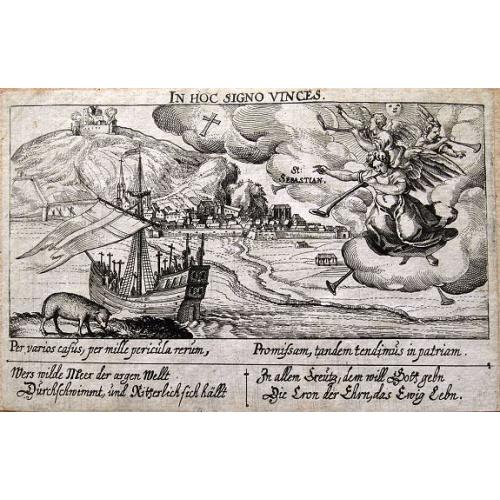 IN HOC SIGNO VINCES.
St:
SEBASTIAN.
Per varios casus, per mille pericula rerum,
Promissam, tandem tendimus in patriam.
Wers wilde Meer der argen Wellt
Durchschwimmt, und Ritterlich sich hällt
In allem Creutz, dem will Gott gebn
Die Cron der Ehrn, das Ewig Lebn.